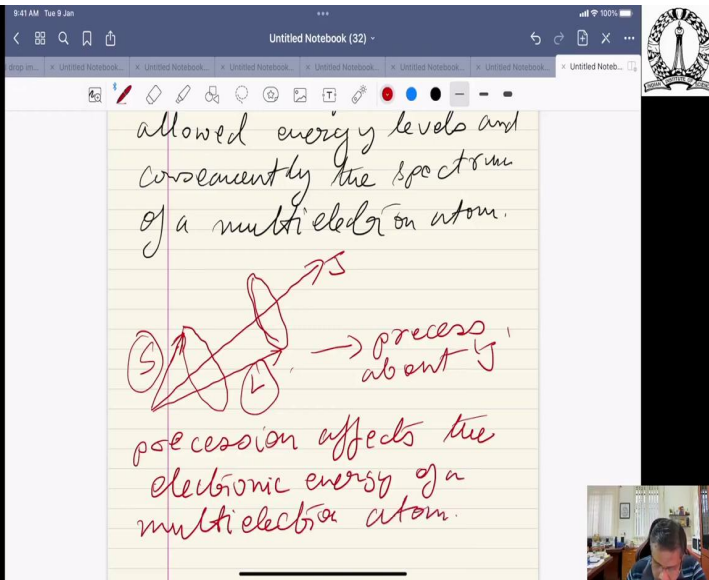 9:41 AM Tue 9 Jan
100%
Untitled Notebook (32)
drop im... × Untitled Notebook... × Untitled Notebook... × Untitled Notebook... × Untitled Notebook... × Untitled Notebook... × Untitled Notebook... × Untitled Noteb...
allowed energy levels and
consequently the spectrum
of a multielectron atom.
J
S
L
→ precess
about J
precession affects the
electronic energy of a
multielectron atom.